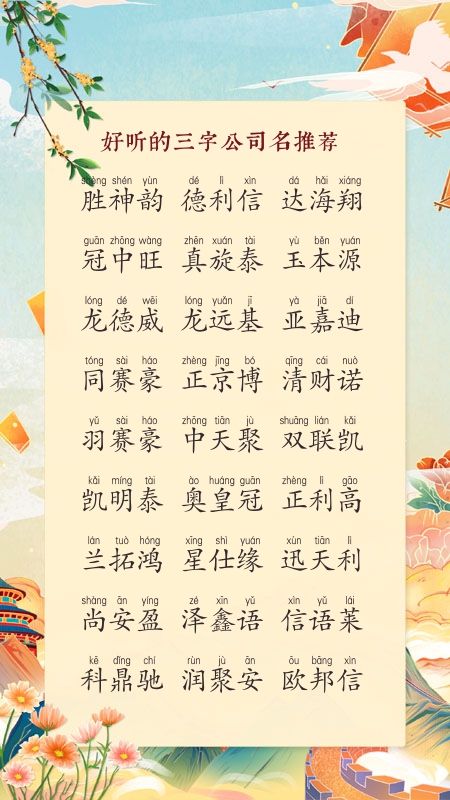 好听的三字公司名推荐
shèng shén yùn dé lì xìn dá hǎi xiáng
胜神韵 德利信 达海翔
guān zhōng wàng zhēn xuán tài yù běn yuán
冠中旺 真旋泰 玉本源
lóng dé wēi lóng yuǎn jī yà jiā dí
龙德威 龙远基 亚嘉迪
tóng sài háo zhèng jīng bó qīng cái nuò
同赛豪 正京博 清财诺
yǔ sài háo zhōng tiān jù shuāng lián kǎi
羽赛豪 中天聚 双联凯
kǎi míng tài ào huáng guān zhèng lì gāo
凯明泰 奥皇冠 正利高
lán tuò hóng xīng shì yuán xùn tiān lì
兰拓鸿 星仕缘 迅天利
shàng ān yíng zé xīn yǔ xìn yǔ lái
尚安盈 泽鑫语 信语莱
kē dǐng chí rùn jù ān ōu bāng xìn
科鼎驰 润聚安 欧邦信